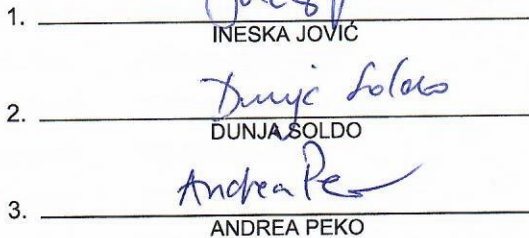 1.
INESKA JOVIĆ
Dunja Soldo
2.
DUNJA SOLDO
Andrea Pe
3.
ANDREA PEKO